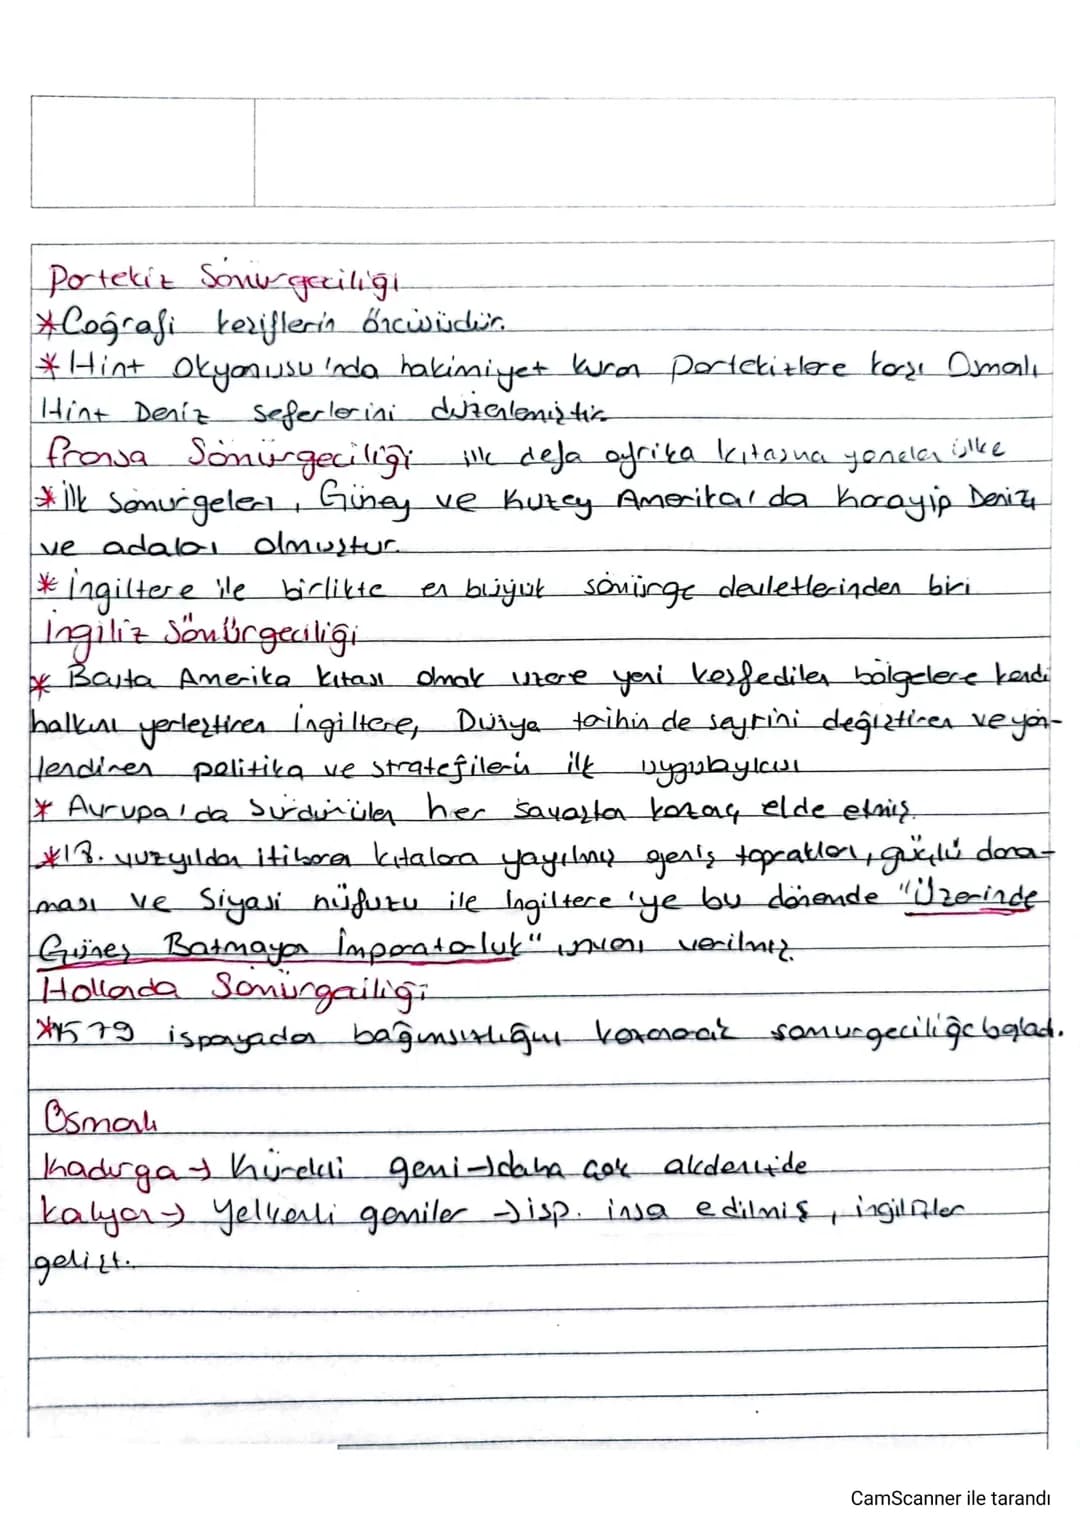 Portekiz Sömürgeciliği
*Coğrafi keşiflerin öncüsüdür.
*Hint Okyonusu'nda hakimiyet kuran Portekizlere karşı Osmalı
Hint Deniz seferlerini düzenlemiştir.
fransa Sömürgeciliği ilk defa afrika kıtasına yönelen ülke
*ilk sömürgeleri, Güney ve Kuzey Amerika'da Karayip Denizi
ve adaları olmuştur.
*İngiltere ile birlikte en büyük sömürge devletlerinden biri
İngiliz Sömürgeciliği
* Başta Amerika kıtası olmak üzere yeni keşfedilen bölgelere kendi
halkını yerleştiren İngiltere, Dünya taihin de seyrini değiştiren ve yön-
lendiren politika ve stratejilerin ilk uygulayıcısı
* Avrupa'da Sürdürülen her savaştan kazanç elde etmiş.
*18. yuzyıldan itibaren kıtalara yayılmış geniş toprakları, güçlü donan-
ması ve Siyasi nüfuzu ile İngiltere'ye bu dönemde "Üzerinde
Güneş Batmayan İmparatorluk" ünvanı verilmiş.
Hollanda Sömürgeciliği
*1579 ispanyadan bağımsızlığını kazanarak somurgeciliğe başlad.
Osmanlı
Kadırga → Kürekli gemi → daha çok akdenizde
Kalyon → Yelkenli gemiler → isp. insa edilmiş, ingilizler
gelişt.
CamScanner ile tarandı